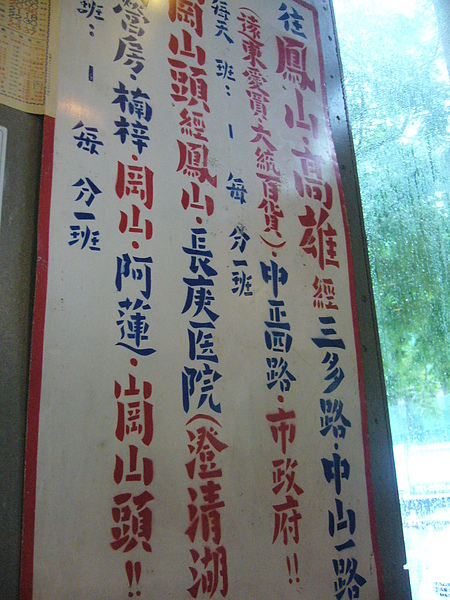 往鳳山高雄經三多路·中山一路
(遠東愛買·大統百貨)·中正四路·市政府!!
每天 班:- 每 分一班
崗山頭經鳳山·長庚医院(澄清湖
營房·楠梓·岡山·阿蓮·崗山頭!!
班:- 每 分一班